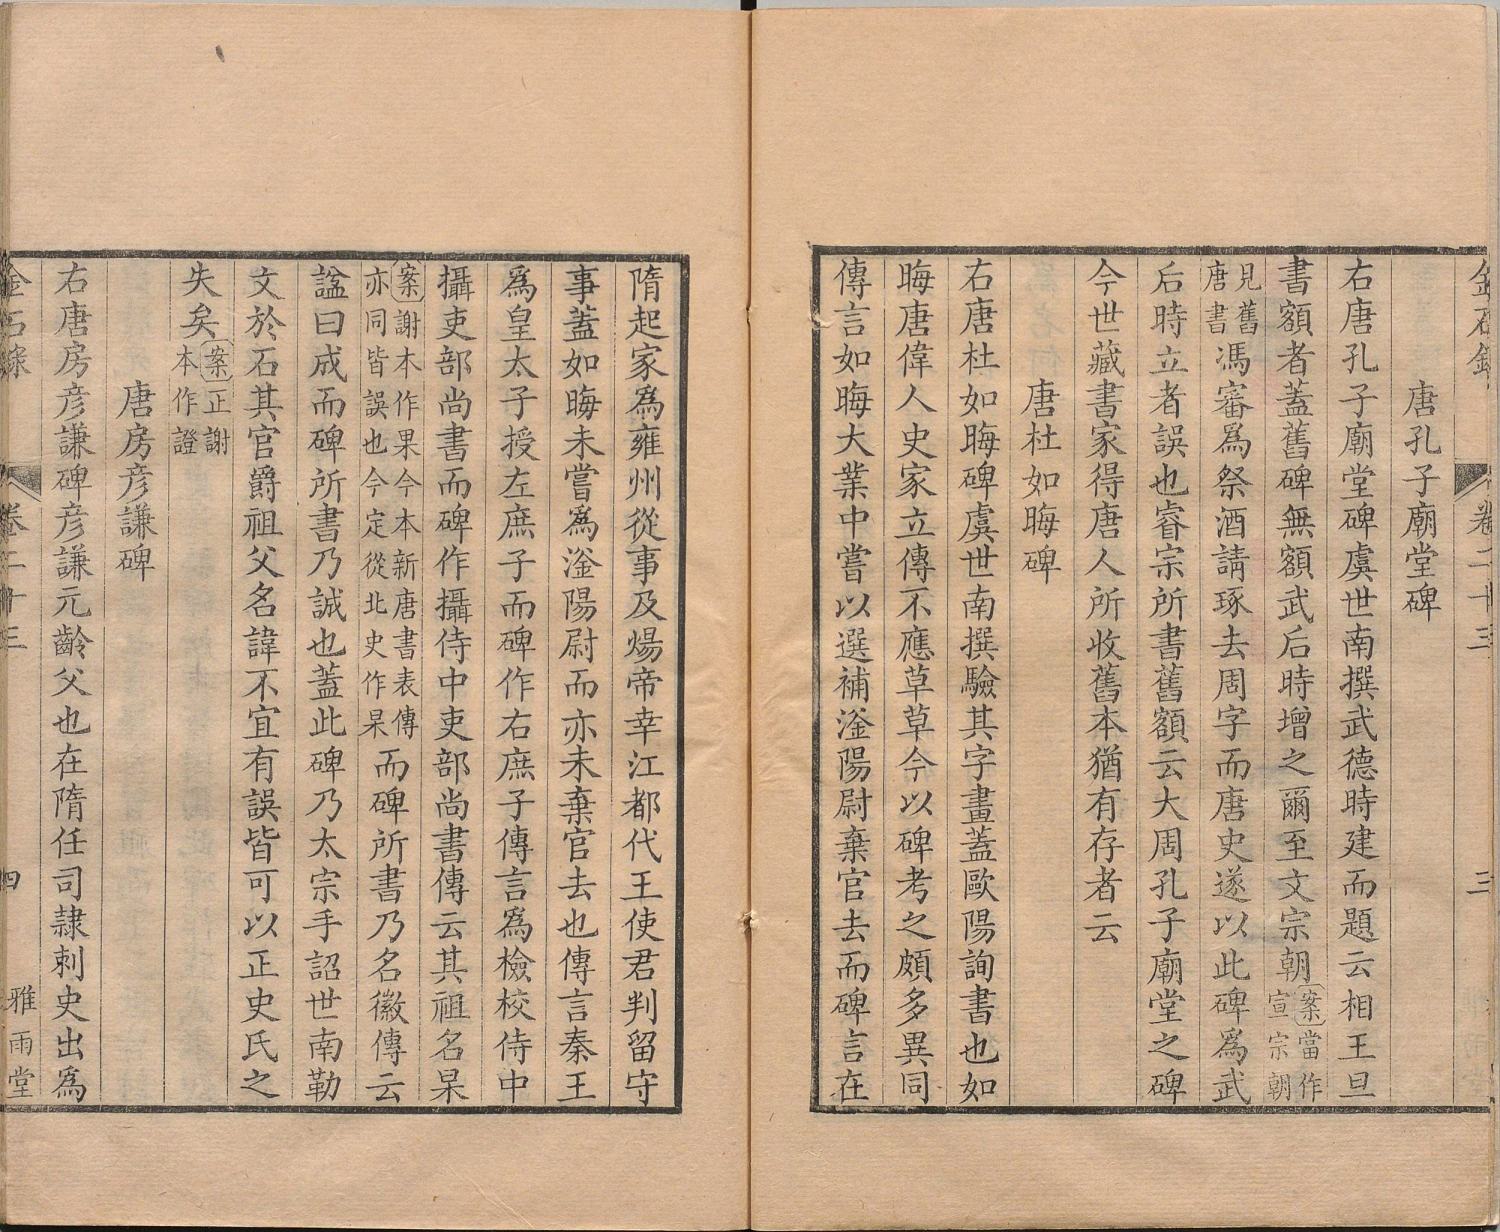 金石錄 卷二十三 三
唐孔子廟堂碑
右唐孔子廟堂碑虞世南撰武德時建而題云相王旦
書額者蓋舊碑無額武后時增之爾至文宗朝案當作宣宗朝
見舊唐書馮審為祭酒請琢去周字而唐史遂以此碑為武
后時立者誤也睿宗所書舊額云大周孔子廟堂之碑
今世藏書家得唐人所收舊本猶有存者云
唐杜如晦碑
右唐杜如晦碑虞世南撰驗其字畫蓋歐陽詢書也如
晦唐偉人史家立傳不應草草今以碑考之頗多異同
傳言如晦大業中嘗以選補滏陽尉棄官去而碑言在
隋起家為雍州從事及煬帝幸江都代王使君判留守
事蓋如晦未嘗為滏陽尉而亦未棄官去也傳言秦王
為皇太子授左庶子而碑作右庶子傳言為檢校侍中
攝吏部尚書而碑作攝侍中吏部尚書傳云其祖名杲
案謝本作果今本新唐書表傳亦同皆誤也今定從北史作杲而碑所書乃名徽傳云
諡曰成而碑所書乃誠也蓋此碑乃太宗手詔世南勒
文於石其官爵祖父名諱不宜有誤皆可以正史氏之
失矣案正謝本作證
唐房彦謙碑
右唐房彦謙碑彦謙元齡父也在隋任司隸刺史出為
金石錄 卷二十三 四 雅雨堂